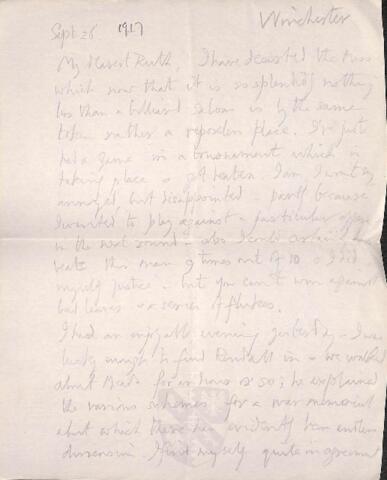 Sept 26 1917 Winchester
My dearest Ruth, I have deserted the mess
which now that it is so splendid nothing
less than a billiard saloon is by the same
token rather a reposeless place. I've just
had a game in a tournament which is
taking place & got beaten. I am, I won't say
annoyed, but disappointed - partly because
I wanted to play against a particular
in the next round - also I could certainly have
beaten this man 9 times out of 10 & did
myself justice - but you can't win against
bad leaves & a series of flukes.
I had an enjoyable evening yesterday - I was
lucky enough to find Rendall in & we walked
about Meads for an hour or so; he explained
the various schemes for a war memorial
about which there has evidently been endless
discussion. I find myself quite in agreement